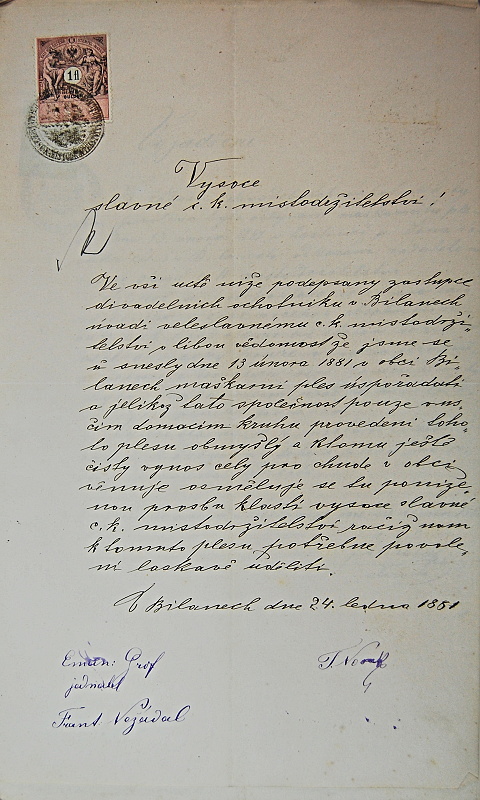 1 fl
Vysoce
slavné c. k. místodržitelství!
Ve vší uctě níže podepsaný zastupce
divadelních ochotníku v Bilanech
uvadí veleslavnému c. k. místodrži-
telství v libou vědomost že jsme se
u snesly dne 13 února 1881 v obci Bi-
lanech maškarní ples uspořádati
a jelikož tato společnost pouze v us-
čím domacím kruhu provedení toho-
to plesu obmyšlý a ktomu ještě
čistý vynos celý pro chudé v obci
věnuje osměluje se tu poníže-
nou prosbu klasti vysoce slavné
c. k. místodržitelství račiž nam
k tomuto plesu potřebné povole-
ní laskavě uděliti.
V Bilanech dne 24. ledna 1881
Eman: Grof
jednatel
Frant. Vojáčal
T. Novak